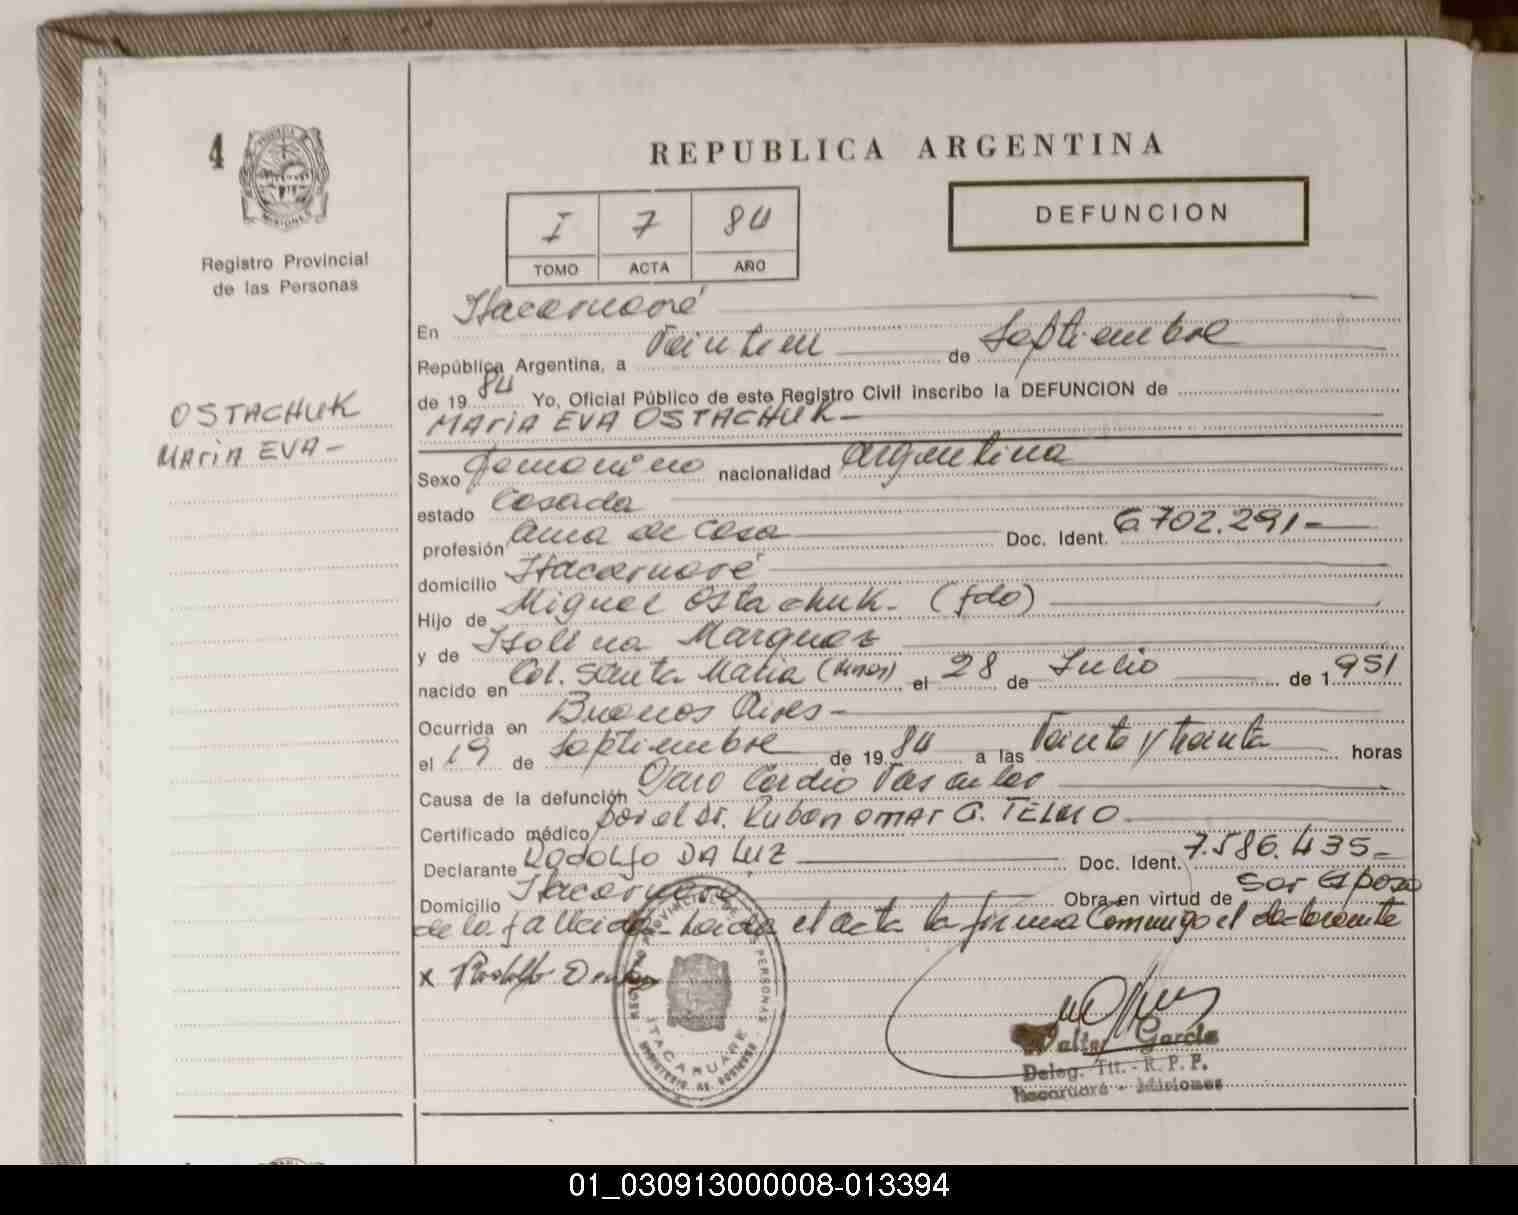 4
REPUBLICA ARGENTINA
I 7 84
TOMO ACTA AÑO
DEFUNCION
Registro Provincial
de las Personas
OSTACHUK
MARIA EVA -
En Itacaruaré
República Argentina, a Veintiun de Septiembre
de 1984 Yo, Oficial Público de este Registro Civil inscribo la DEFUNCION de
MARIA EVA OSTACHUK -
Sexo femenino nacionalidad argentina
estado Casada
profesión ama de casa Doc. Ident. 6.702.291 -
domicilio Itacaruaré
Hijo de Miguel Ostachuk - (fdo)
y de Isolina Marquez
nacido en Col. Santa Maria (Mnes) el 28 de Julio de 1.951
Ocurrida en Buenos Aires -
el 19 de Septiembre de 1984 a las Veinte y treinta horas
Causa de la defunción Paro Cardio Vascular
Certificado médico por el Dr. Ruben OMAR G. TELMO
Declarante RODOLFO DA LUZ Doc. Ident. 7.586.435 -
Domicilio Itacaruaré Obra en virtud de Ser Esposo
de la fallecida - Leida el acta la firma Conmigo el declarante
x Rodolfo
REGISTRO PROVINCIAL DE LAS PERSONAS
ITACARUARE
Walter García
Deleg. Tit. - R. P. P.
Itacaruaré - Misiones
01_030913000008-013394